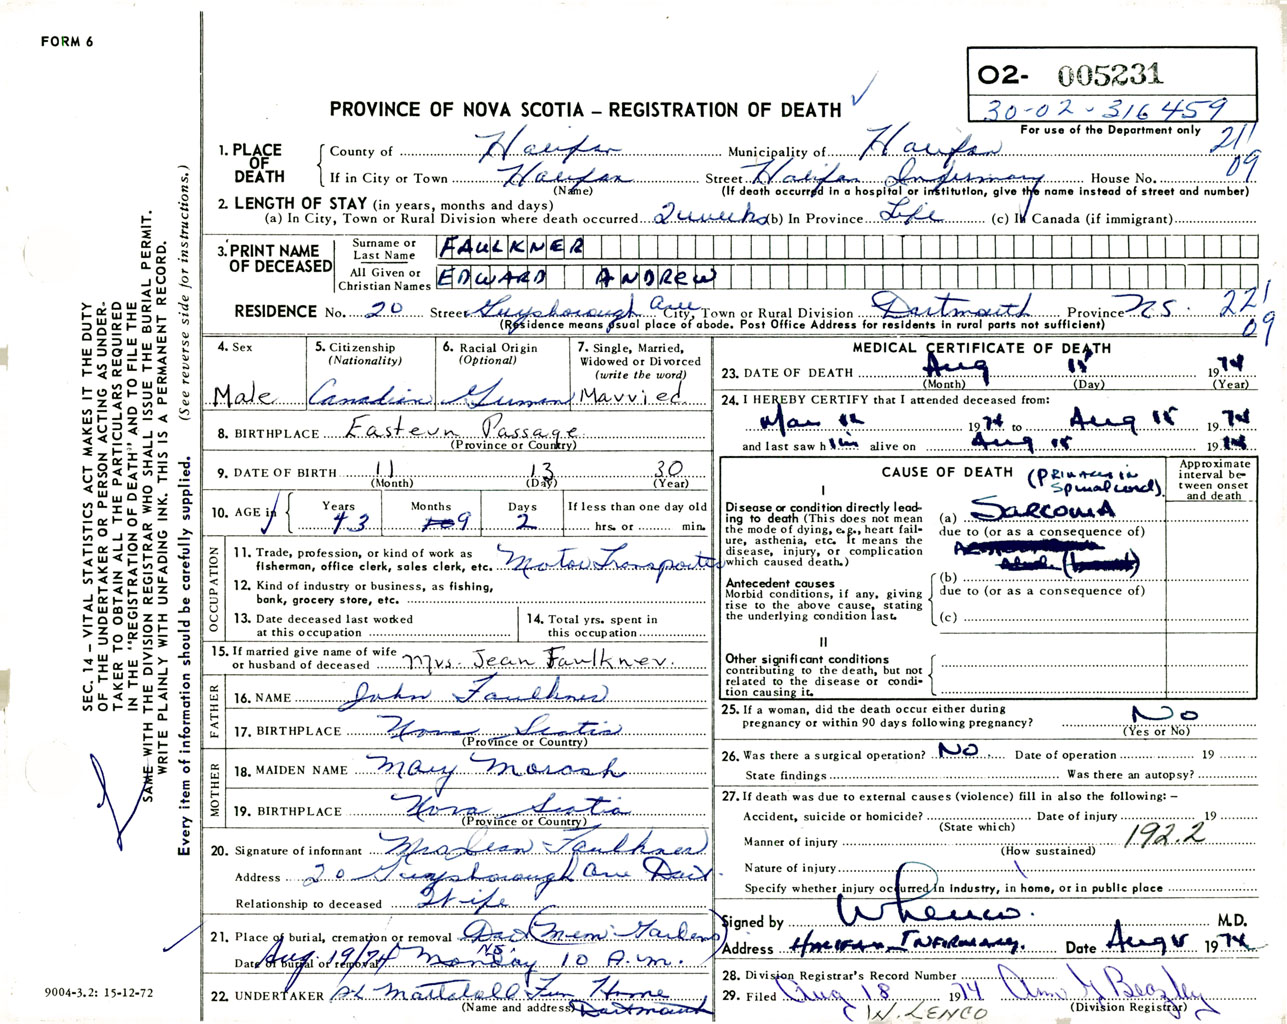 FORM 6
O2- 005231
30-02-316459
For use of the Department only
PROVINCE OF NOVA SCOTIA – REGISTRATION OF DEATH
21/09
1. PLACE OF DEATH
County of Halifax Municipality of Halifax
If in City or Town Halifax Street Halifax Infirmary House No.
(Name) (If death occurred in a hospital or institution, give the name instead of street and number)
2. LENGTH OF STAY (in years, months and days)
(a) In City, Town or Rural Division where death occurred 2 weeks (b) In Province Life (c) In Canada (if immigrant)
3. PRINT NAME OF DECEASED
Surname or Last Name FAULKNER
All Given or Christian Names EDWARD ANDREW
RESIDENCE No. 20 Street Guysborough Ave City, Town or Rural Division Dartmouth Province N.S.
(Residence means usual place of abode. Post Office Address for residents in rural parts not sufficient)
22/09
4. Sex
Male
5. Citizenship
(Nationality)
Canadian
6. Racial Origin
(Optional)
German
7. Single, Married, Widowed or Divorced
(write the word)
Married
8. BIRTHPLACE Eastern Passage
(Province or Country)
9. DATE OF BIRTH 11 13 30
(Month) (Day) (Year)
10. AGE in
Years 43
Months 9
Days 2
If less than one day old
hrs. or min.
OCCUPATION
11. Trade, profession, or kind of work as fisherman, office clerk, sales clerk, etc. Motor Transporter
12. Kind of industry or business, as fishing, bank, grocery store, etc.
13. Date deceased last worked at this occupation
14. Total yrs. spent in this occupation
15. If married give name of wife or husband of deceased Mrs. Jean Faulkner.
FATHER
16. NAME John Faulkner
17. BIRTHPLACE Nova Scotia
(Province or Country)
MOTHER
18. MAIDEN NAME Mary Morash
19. BIRTHPLACE Nova Scotia
(Province or Country)
20. Signature of informant Mrs Jean Faulkner
Address 20 Guysborough Ave Dart.
Relationship to deceased Wife
21. Place of burial, cremation or removal Dart Mem. Gardens
N.S.
Date of burial or removal Aug. 19/74 Monday 10 A.M.
22. UNDERTAKER Mattatall Fun Home
(Name and address) Dartmouth
MEDICAL CERTIFICATE OF DEATH
23. DATE OF DEATH Aug 15 1974
(Month) (Day) (Year)
24. I HEREBY CERTIFY that I attended deceased from:
Mar 12 1974 to Aug 15 1974
and last saw him alive on Aug 15 1974
CAUSE OF DEATH (PRIMARY in Spinal cord).
Approximate interval between onset and death
I
Disease or condition directly leading to death (This does not mean the mode of dying, e.g., heart failure, asthenia, etc. It means the disease, injury, or complication which caused death.)
(a) SARCOMA
due to (or as a consequence of)
Antecedent causes
Morbid conditions, if any, giving rise to the above cause, stating the underlying condition last.
(b)
due to (or as a consequence of)
(c)
II
Other significant conditions
contributing to the death, but not related to the disease or condition causing it.
25. If a woman, did the death occur either during pregnancy or within 90 days following pregnancy? No
(Yes or No)
26. Was there a surgical operation? NO Date of operation 19
State findings Was there an autopsy?
27. If death was due to external causes (violence) fill in also the following: –
Accident, suicide or homicide? Date of injury 19
(State which)
Manner of injury 192.2
(How sustained)
Nature of injury
Specify whether injury occurred in industry, in home, or in public place
Signed by M.D.
Address HALIFAX INFIRMARY. Date Aug 15 1974
28. Division Registrar's Record Number
29. Filed Aug 18 1974 Ann G Beazley
(Division Registrar)
W. LENCO
SEC. 14 – VITAL STATISTICS ACT MAKES IT THE DUTY
OF THE UNDERTAKER OR PERSON ACTING AS UNDER-
TAKER TO OBTAIN ALL THE PARTICULARS REQUIRED
IN THE "REGISTRATION OF DEATH" AND TO FILE THE
SAME WITH THE DIVISION REGISTRAR WHO SHALL ISSUE THE BURIAL PERMIT.
WRITE PLAINLY WITH UNFADING INK. THIS IS A PERMANENT RECORD.
Every item of information should be carefully supplied. (See reverse side for instructions.)
9004-3.2: 15-12-72